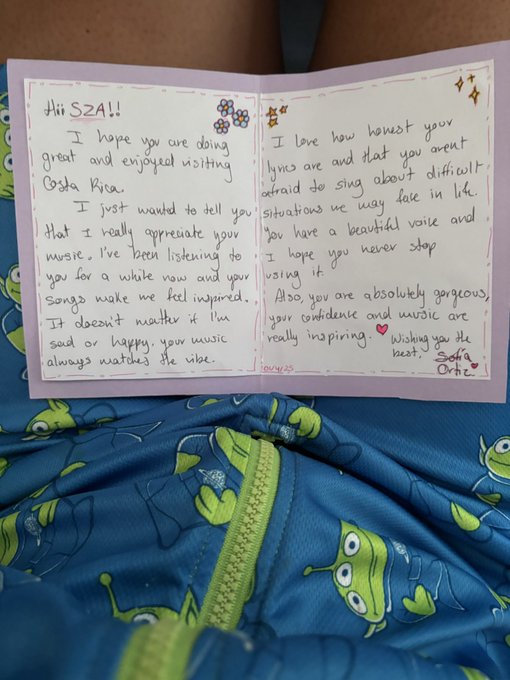 Hii SZA!!
I hope you are doing
great and enjoyed visiting
Costa Rica.
I just wanted to tell you
that I really appreciate your
music. I've been listening to
you for a while now and your
songs make me feel inspired.
It doesn't matter if I'm
sad or happy, your music
always matches the vibe.
I love how honest your
lyrics are and that you arent
afraid to sing about difficult
situations we may face in life.
You have a beautiful voice and
I hope you never stop
using it.
Also, you are absolutely gorgeous,
your confidence and music are
really inspiring.
Wishing you the
best.
Sofia
Ortiz